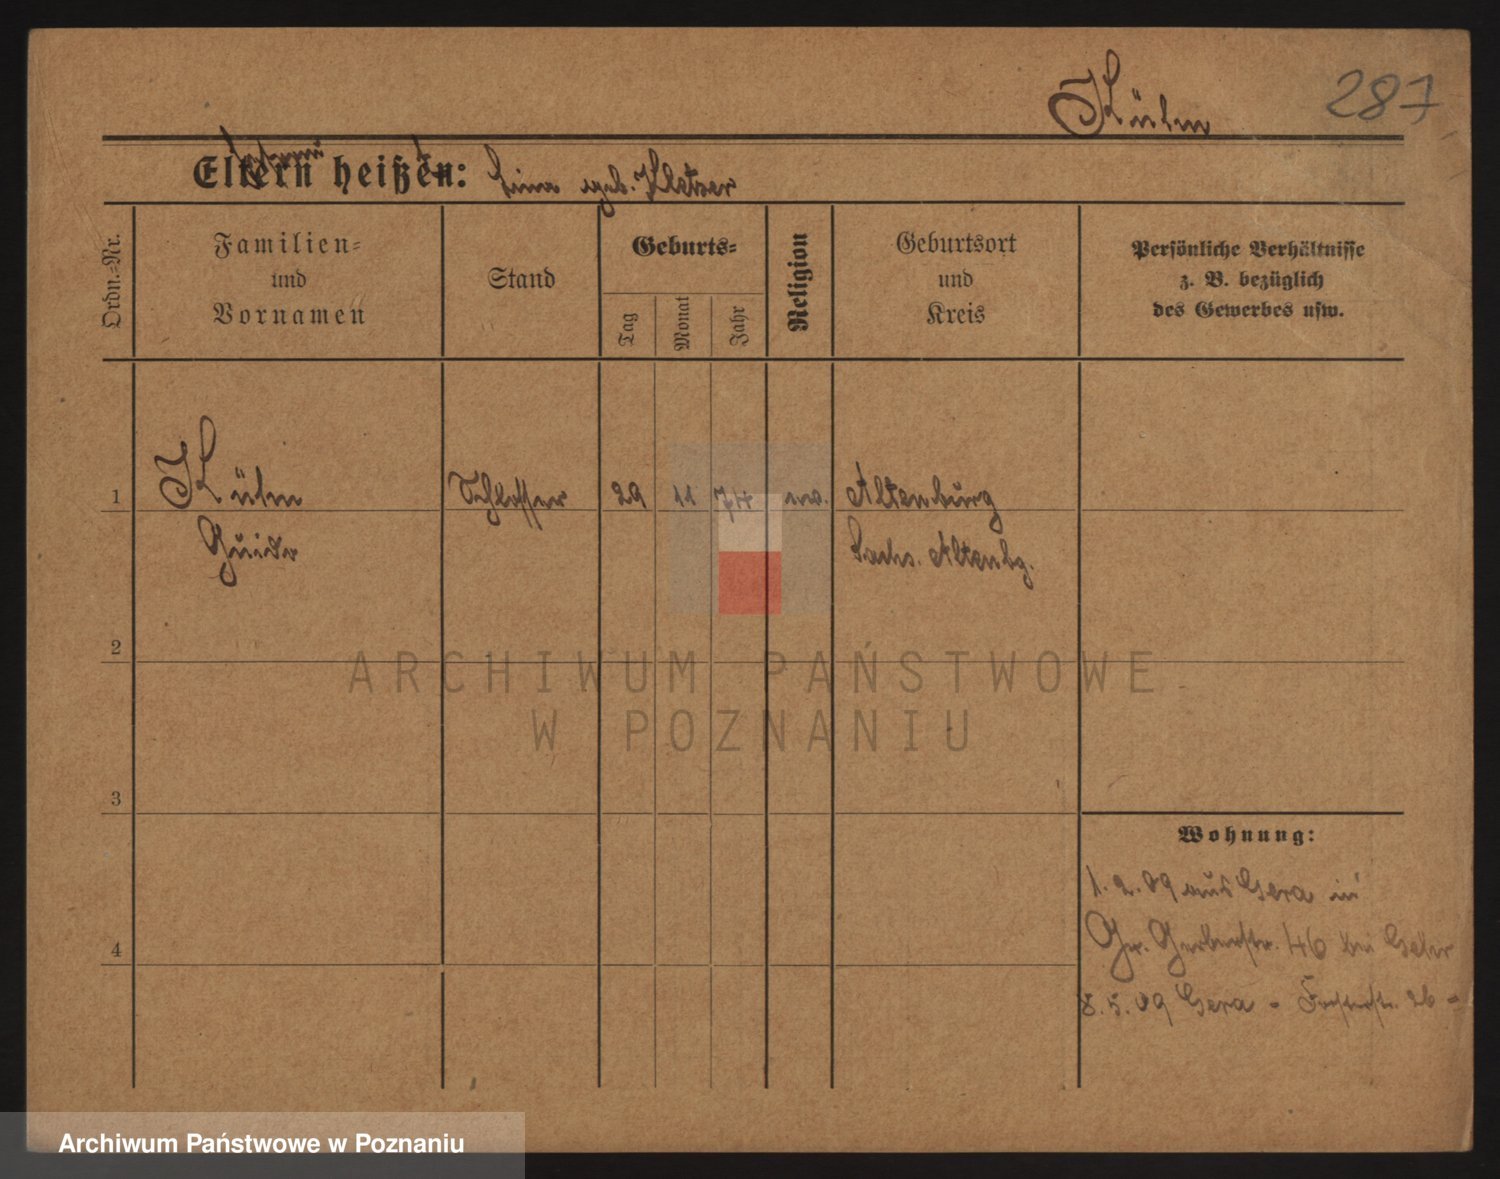 Kühn 287
Eltern heißen: Lina geb.
Ordn.-Nr.
Familien-
und
Vornamen
Stand
Geburts-
Tag
Monat
Jahr
Religion
Geburtsort
und
Kreis
Persönliche Verhältnisse
z. B. bezüglich
des Gewerbes usw.
1 Kühn Schlosser 29 11 74 ev. Altenburg
Guido Sachs. Altenbg.
2
3
4
Wohnung:
1.2.09 aus Gera in
Gr. Gerberstr. 46 bei
8.5.09 Gera - 26 -
ARCHIWUM PAŃSTWOWE
W POZNANIU
Archiwum Państwowe w Poznaniu